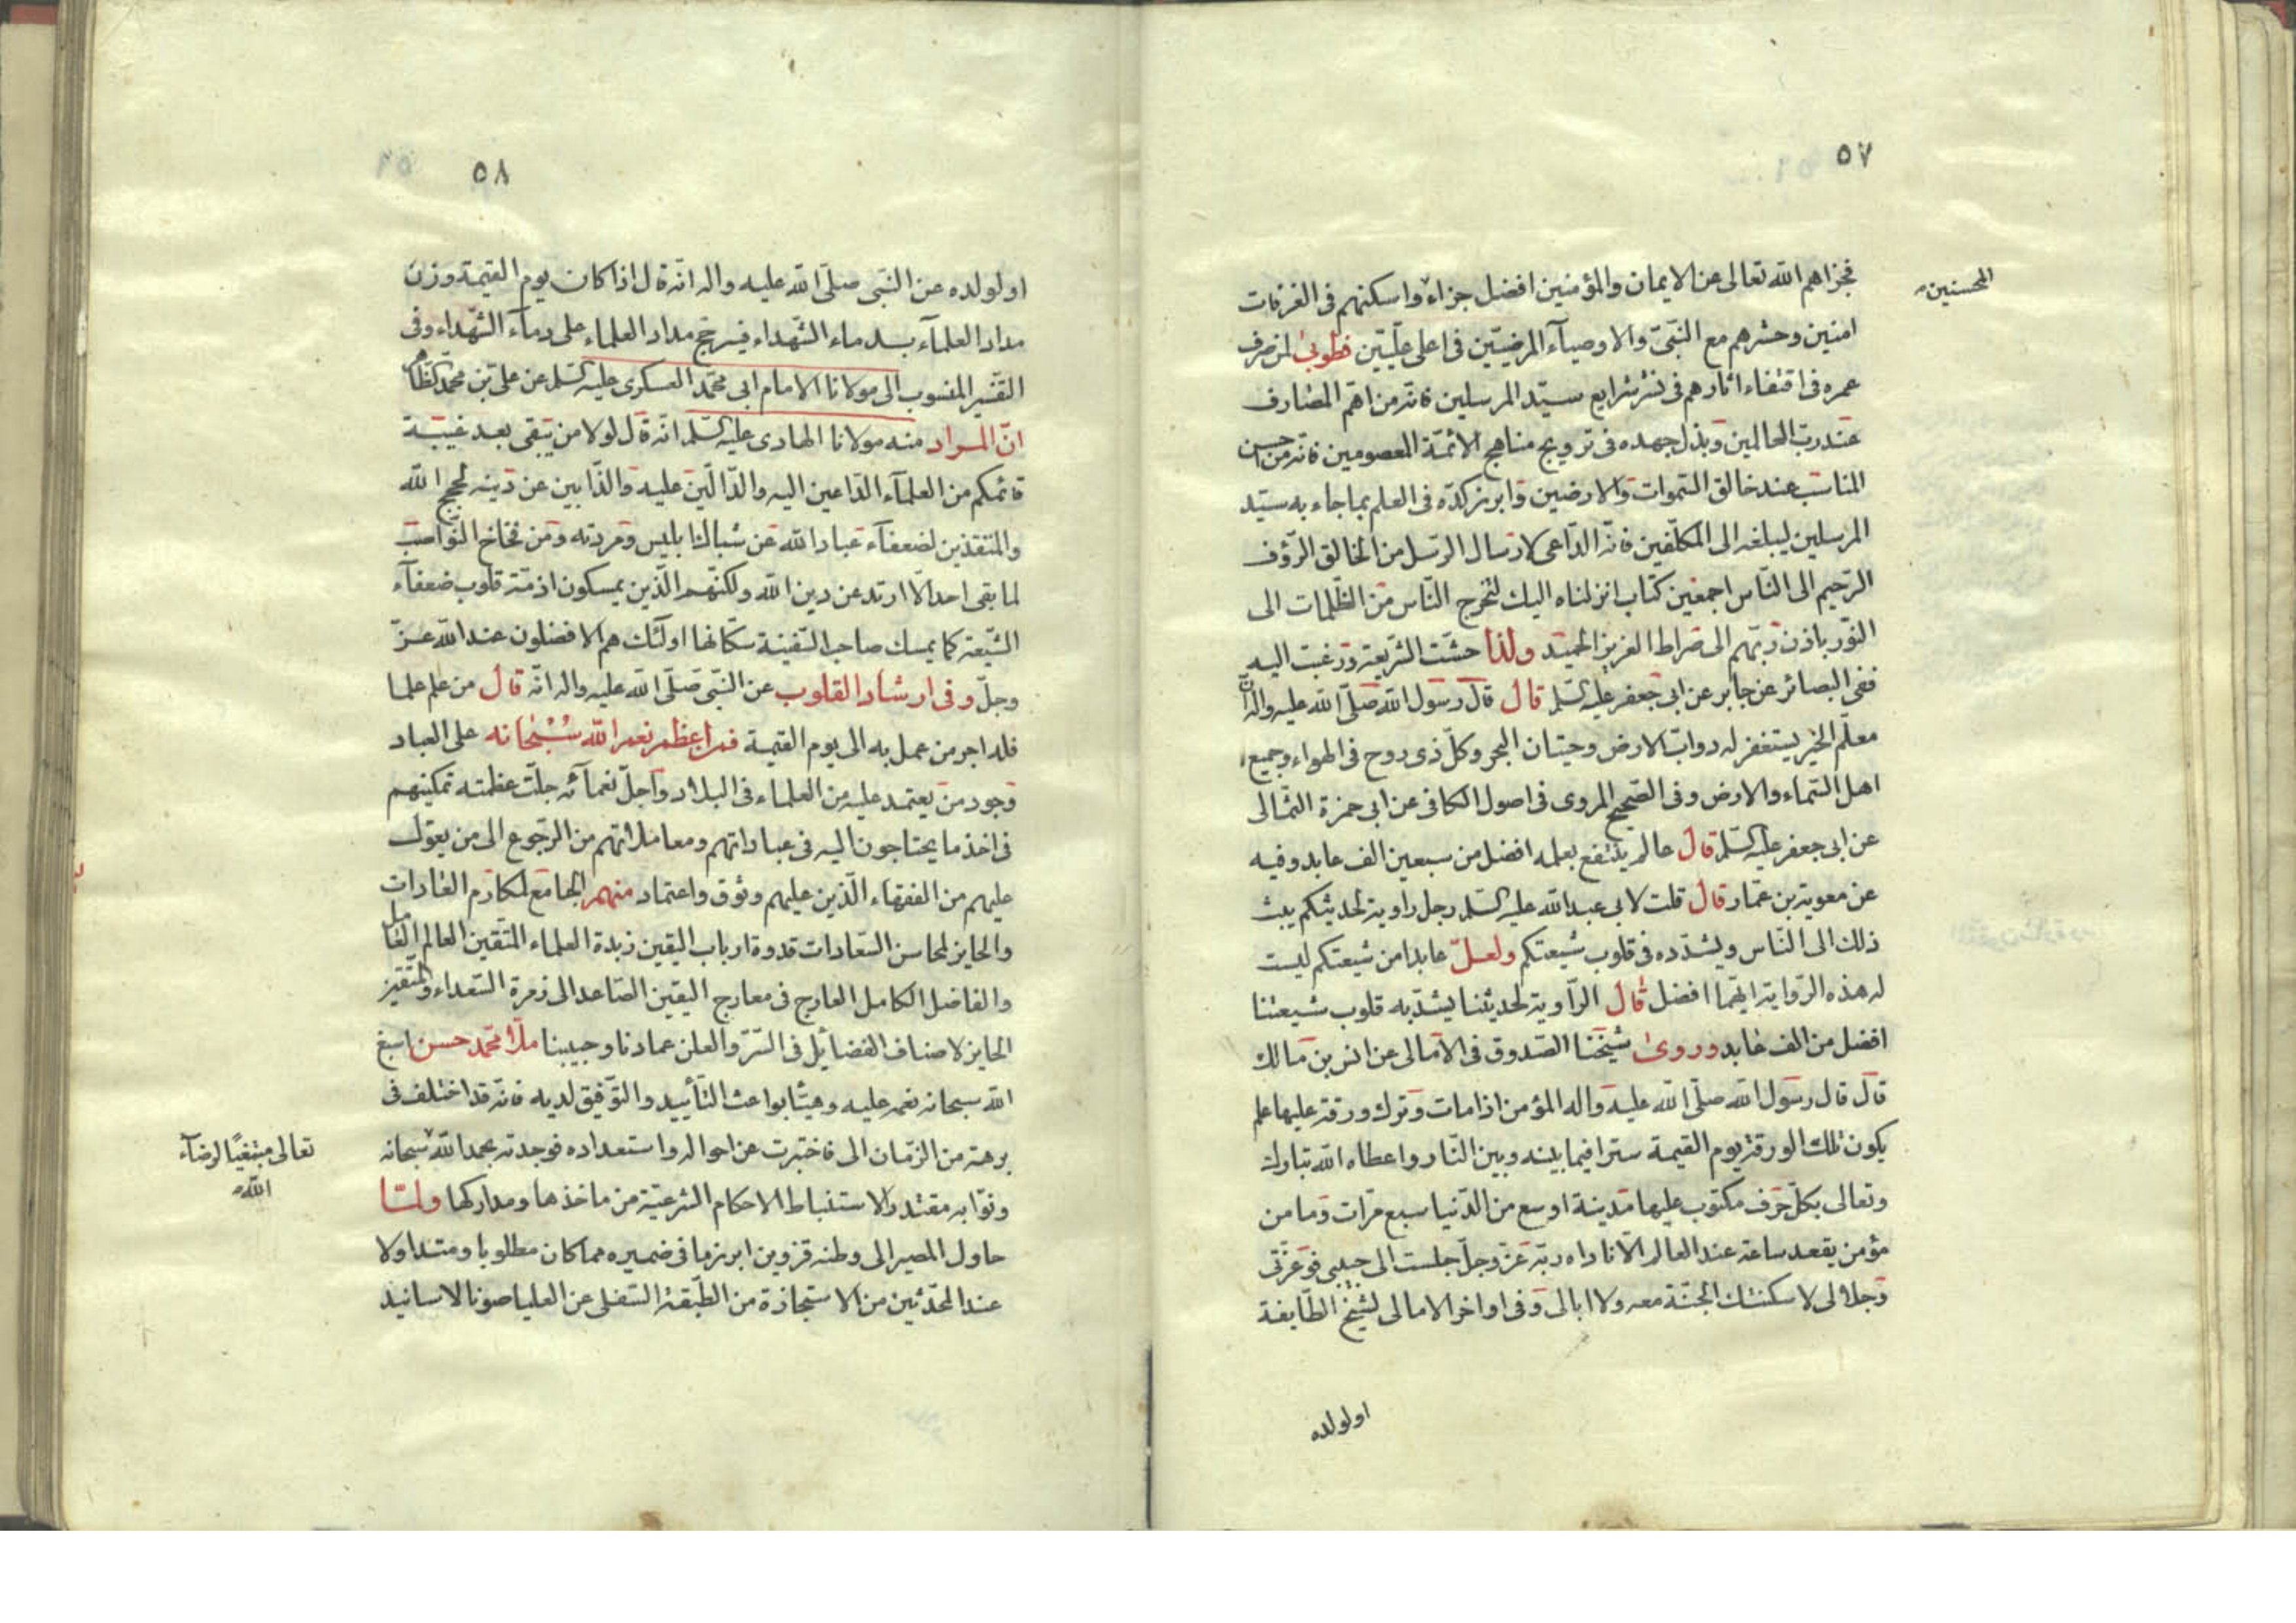 ٥٧
فجزاهم الله تعالى عن الايمان والمؤمنين افضل جزاء واسكنهم فى الغرفات
المحسنين
امنين وحشرهم مع النبى والاوصيآء المرضيين فى اعلى عليين فطوبى لمن صرف
عمره فى اقتفاء اثارهم فى نشر شرايع سيد المرسلين فانه من اهم المصارف
عند رب العالمين وبذل جهده فى ترويج مناهج الائمة المعصومين فانه من احسن
المناسب عند خالق السموات والارضين وابرز كده فى العلم بما جاء به سيد
المرسلين ليبلغه الى المكلفين فانه الداعى لارسال الرسل من الخالق الرؤف
الرحيم الى الناس اجمعين كتاب انزلناه اليك لتخرج الناس من الظلمات الى
النور باذن ربهم الى صراط العزيز الحميد ولذا حثت الشريعة ورغبت اليه
ففى البصائر عن جابر عن ابى جعفر عليه السلم قال قال رسول الله صلى الله عليه واله ان
معلم الخير يستغفر له دواب الارض وحيتان البحر وكل ذى روح فى الهواء وجميع
اهل السماء والارض وفى الصحيح المروى فى اصول الكافى عن ابى حمزة الثمالى
عن ابى جعفر عليه السلم قال عالم ينتفع بعلمه افضل من سبعين الف عابد وفيه
عن معوية بن عمار قال قلت لابى عبد الله عليه السلم رجل راوية لحديثكم يبث
ذلك الى الناس ويشدده فى قلوب شيعتكم ولعل عابدا من شيعتكم ليست
له هذه الرواية ايهما افضل قال الراوية لحديثنا يشد به قلوب شيعتنا
افضل من الف عابد وروى شيخنا الصدوق فى الامالى عن انس بن مالك
قال قال رسول الله صلى الله عليه واله المؤمن اذا مات وترك ورقة عليها علم
يكون تلك الورقة يوم القيمة سترا فيما بينه وبين النار واعطاه الله تبارك
وتعالى بكل حرف مكتوب عليها مدينة اوسع من الدنيا سبع مرات وما من
مؤمن يقعد ساعة عند العالم الا ناداه ربه عز وجل جلست الى حبيبى فوعزتى
وجلالى لاسكنتك الجنة معه ولا ابالى وفى اواخر الامالى لشيخ الطايفة
اولولده
٥٨
اولولده عن النبى صلى الله عليه واله انه قال اذا كان يوم القيمة وزن
مداد العلمآء بدماء الشهداء فيرجح مداد العلماء على دمآء الشهداء وفى
التفسير المنسوب الى مولانا الامام ابى محمد العسكرى عليه السلم عن على بن محمد
ان المراد منه مولانا الهادى عليه السلم انه قال لولا من يبقى بعد غيبة
قائمكم من العلمآء الداعين اليه والدالين عليه والذابين عن دينه لحجج الله
والمنقذين لضعفآء عباد الله عن شباك ابليس ومردته ومن فخاخ النواصب
لما بقى احد الا ارتد عن دين الله ولكنهم الذين يمسكون ازمة قلوب ضعفآء
الشيعة كما يمسك صاحب السفينة سكانها اولئك هم الافضلون عند الله عز
وجل وفى ارشاد القلوب عن النبى صلى الله عليه واله انه قال من علم علما
فله اجر من عمل به الى يوم القيمة فمن اعظم نعم الله سبحانه على العباد
وجود من يعتمد عليه من العلماء فى البلاد واجل نعمآئه جلت عظمته تمكينهم
فى اخذ ما يحتاجون اليه فى عباداتهم ومعاملاتهم من الرجوع الى من يعول
عليهم من الفقهاء الذين عليهم وثوق واعتماد منهم الجامع لمكارم العادات
والحايز لمحاسن السعادات قدوة ارباب اليقين زبدة العلماء المتقين العالم العامل
والفاضل الكامل العارج فى معارج اليقين الصاعد الى زمرة السعداء والمتقين
الحايز لاصناف الفضايل فى السر والعلن عمادنا وحبيبنا ملا محمد حسن اسبغ
الله سبحانه نعمه عليه وهيئا بواعث التأييد والتوفيق لديه فانه قد اختلف فى
برهة من الزمان الى فاختبرت عن احواله واستعداده فوجدته بحمد الله سبحانه
تعالى مبتغيًا لرضآء
الله
وثوابه مقتدرا لاستنباط الاحكام الشرعية من ماخذها ومداركها ولما
حاول المصير الى وطنه قزوين ابرز ما فى ضميره مما كان مطلوبا ومتداولا
عند المحدثين من الاستجازة من الطبقة السفلى عن العليا صونا لاسانيد